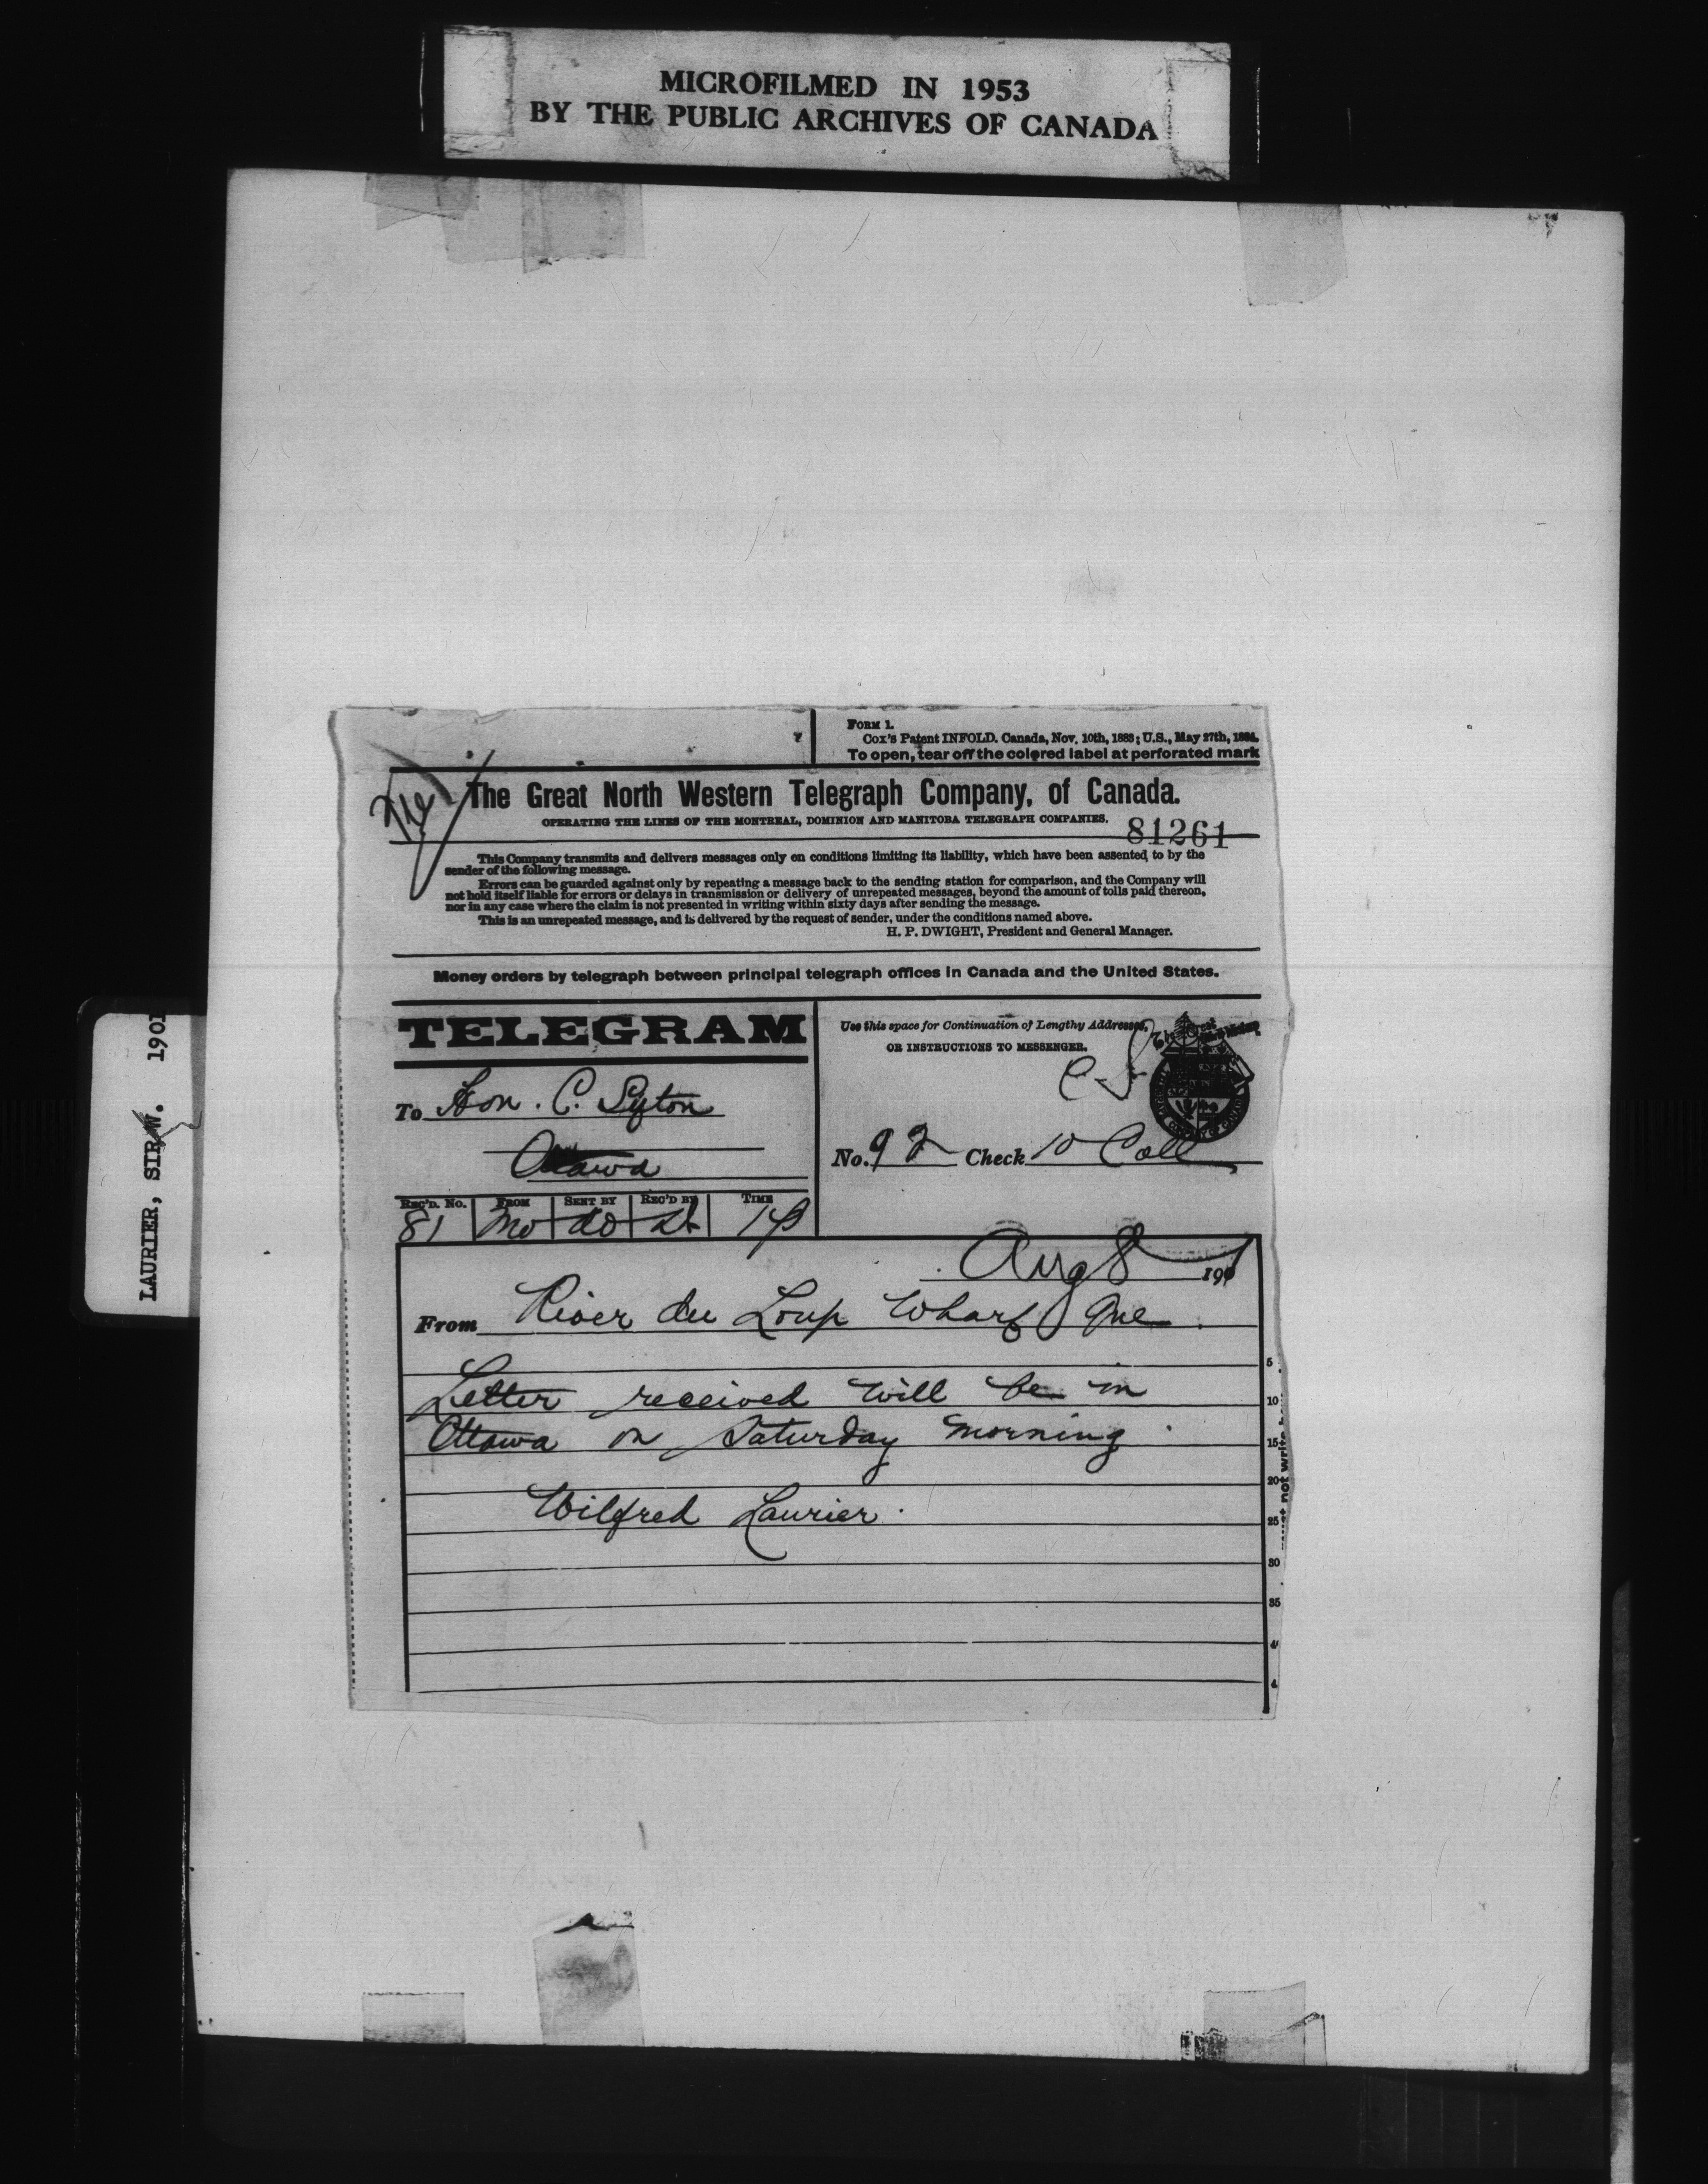 MICROFILMED IN 1953
BY THE PUBLIC ARCHIVES OF CANADA
LAURIER, SIR W. 1901
FORM 1.
Cox's Patent INFOLD. Canada, Nov. 10th, 1883; U.S., May 27th, 1884.
To open, tear off the colored label at perforated mark
File
The Great North Western Telegraph Company, of Canada.
OPERATING THE LINES OF THE MONTREAL, DOMINION AND MANITOBA TELEGRAPH COMPANIES.
81261
This Company transmits and delivers messages only on conditions limiting its liability, which have been assented to by the
sender of the following message.
Errors can be guarded against only by repeating a message back to the sending station for comparison, and the Company will
not hold itself liable for errors or delays in transmission or delivery of unrepeated messages, beyond the amount of tolls paid thereon,
nor in any case where the claim is not presented in writing within sixty days after sending the message.
This is an unrepeated message, and is delivered by the request of sender, under the conditions named above.
H. P. DWIGHT, President and General Manager.
Money orders by telegraph between principal telegraph offices in Canada and the United States.
TELEGRAM
Use this space for Continuation of Lengthy Addresses,
OR INSTRUCTIONS TO MESSENGER.
To Hon. C. Syton
Ottawa
No. 92 Check 10 Coll
REC'D. No. FROM SENT BY REC'D BY TIME
81 Mo do 1p
Aug 8 1901
From River du Loup Wharf Que
Letter received will be in
Ottawa on Saturday morning
Wilfred Laurier.
5
10
15
20
25
30
35